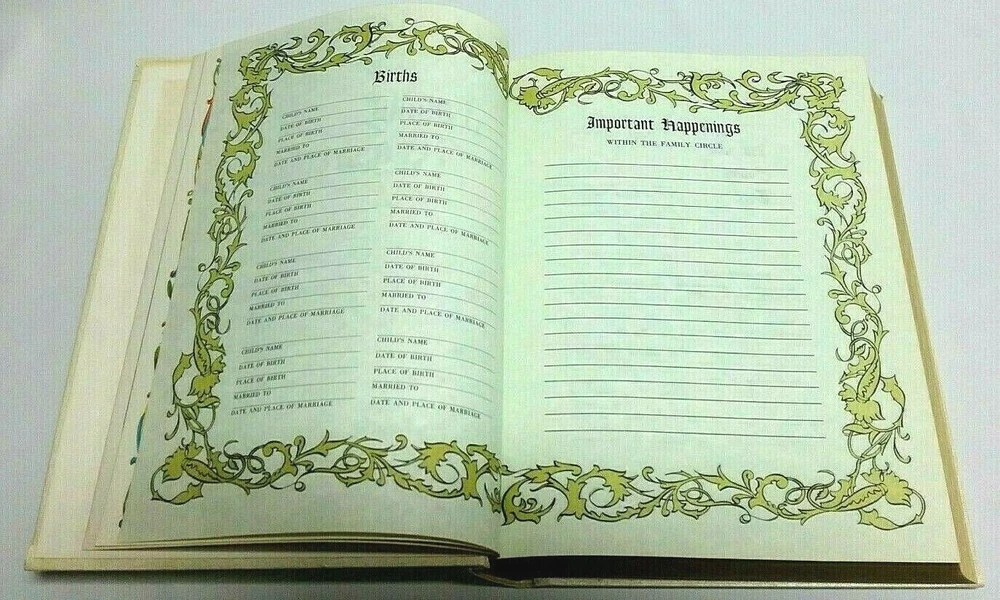 Births
CHILD'S NAME
DATE OF BIRTH
PLACE OF BIRTH
MARRIED TO
DATE AND PLACE OF MARRIAGE
CHILD'S NAME
DATE OF BIRTH
PLACE OF BIRTH
MARRIED TO
DATE AND PLACE OF MARRIAGE
CHILD'S NAME
DATE OF BIRTH
PLACE OF BIRTH
MARRIED TO
DATE AND PLACE OF MARRIAGE
CHILD'S NAME
DATE OF BIRTH
PLACE OF BIRTH
MARRIED TO
DATE AND PLACE OF MARRIAGE
CHILD'S NAME
DATE OF BIRTH
PLACE OF BIRTH
MARRIED TO
DATE AND PLACE OF MARRIAGE
CHILD'S NAME
DATE OF BIRTH
PLACE OF BIRTH
MARRIED TO
DATE AND PLACE OF MARRIAGE
CHILD'S NAME
DATE OF BIRTH
PLACE OF BIRTH
MARRIED TO
DATE AND PLACE OF MARRIAGE
CHILD'S NAME
DATE OF BIRTH
PLACE OF BIRTH
MARRIED TO
DATE AND PLACE OF MARRIAGE
Important Happenings
WITHIN THE FAMILY CIRCLE